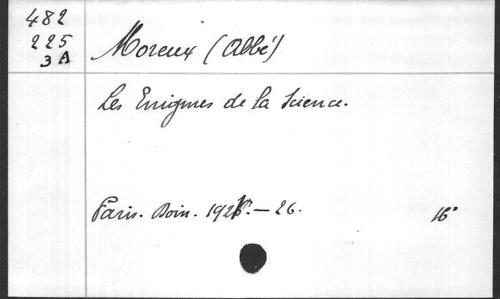 482
225
3 A
Moreux (Abbé)
Les Enigmes de la Science.
Paris. Doin. 1925.-26.
16°